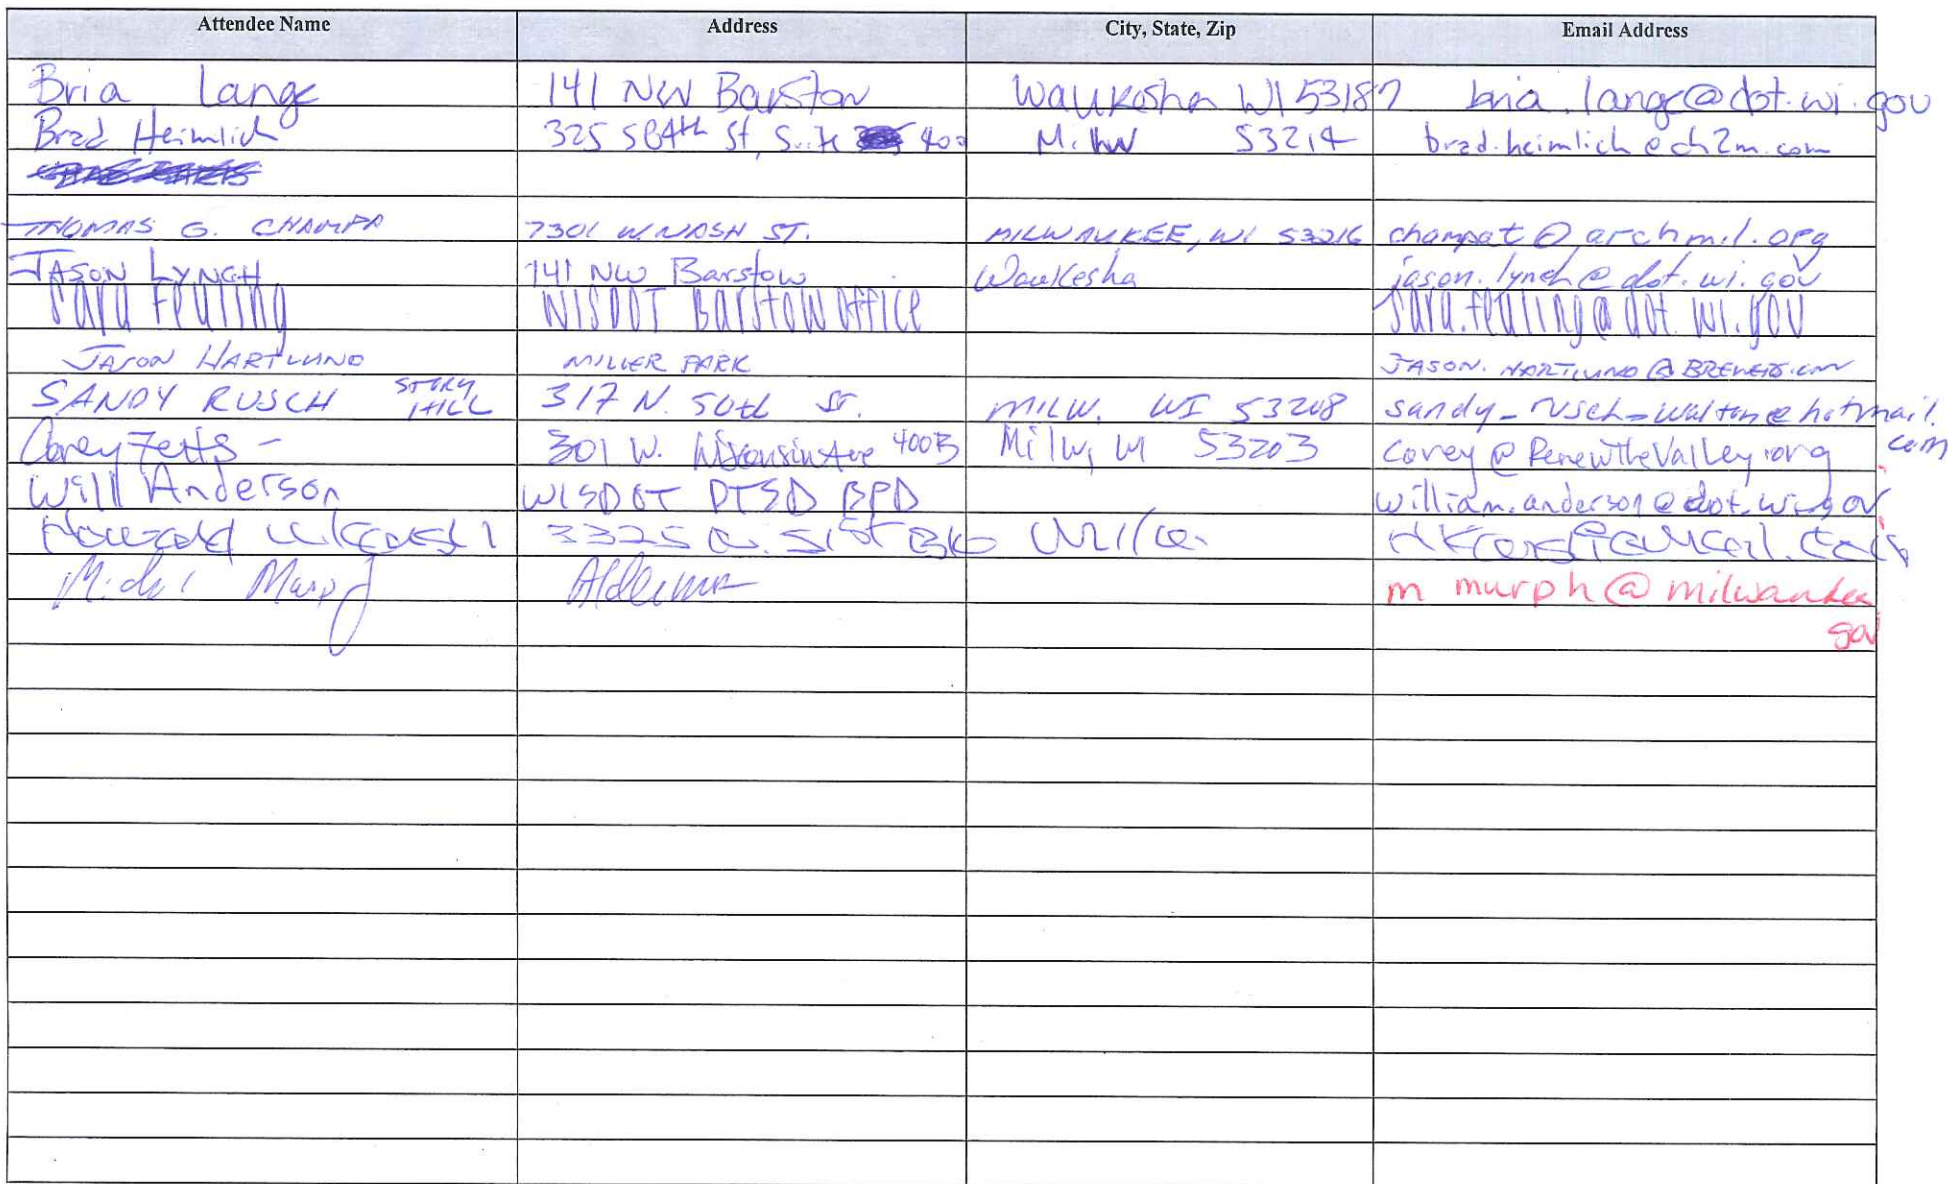 Attendee Name Address City, State, Zip Email Address
Bria Lange 141 NW Barstow Waukesha WI 53187 bria.lange@dot.wi.gov
Brad Heimlich 325 S 84th St, Suite 400 Milw 53214 brad.heimlich@ch2m.com
THOMAS G. CHAMPA 7301 W. NASH ST. MILWAUKEE, WI 53216 champat@archmil.org
JASON LYNCH 141 NW Barstow Waukesha jason.lynch@dot.wi.gov
Sara Feuling WISDOT Barstow Office sara.feuling@dot.wi.gov
JASON HARTLUND MILLER PARK JASON.HARTLUND@BREWERS.COM
SANDY RUSCH STORY HILL 317 N. 50th ST. MILW. WI 53208 sandy_rusch_walton@hotmail.com
Corey Zetts - 301 W. Wisconsin Ave 400B Milw, WI 53203 corey@RenewTheValley.org
Will Anderson WISDOT DTSD BPD william.anderson@dot.wi.gov
3325
Alderman m murph@milwaukee
gov